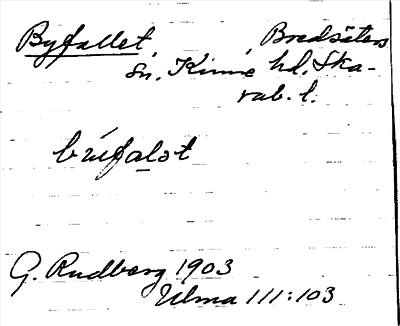 Byfallet, Bredsäters
sn, Kinne hd, Ska-
rab. l.
G. Rudberg 1903
Ulma 111:103